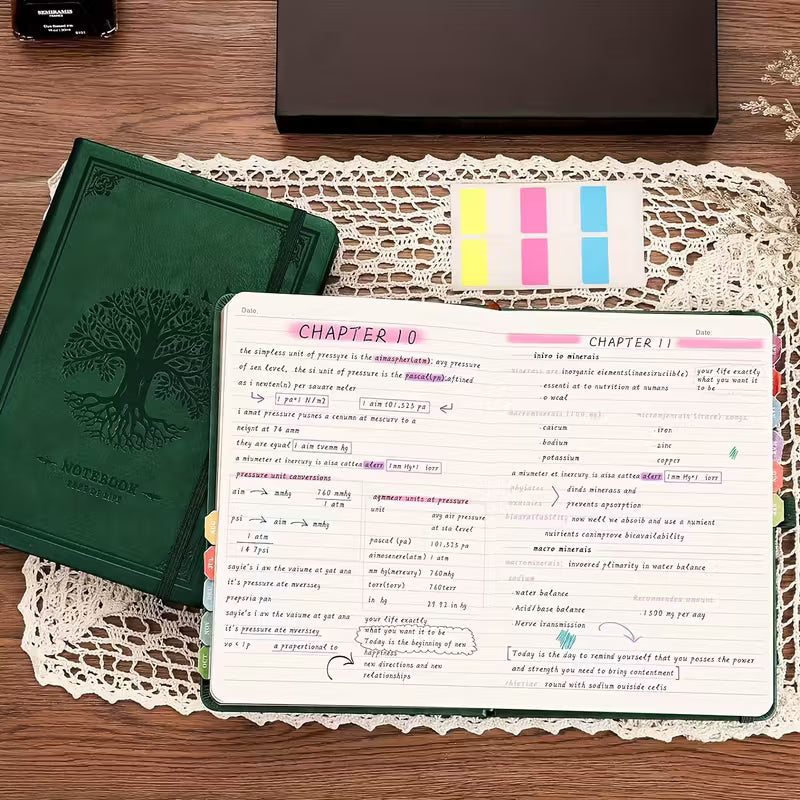 SEMIRAMIS
FRANCE
NOTEBOOK
Date:
CHAPTER 10
the simpless unit of pressyre is the aimaspher(atm); avg pressure
of sen level, the si unit of pressure is the pascal(pn).aftined
as i newten(n) per sauare meler
1 pa*1 N/m2
1 aim t01,525 pa
i amat pressure pusnes a cenumn at mescury to a
neignt at 74 amm
they are equal i aim tvemm hg
a miumeter et inercury is aisa cattea alerr 1mm Hg* 1 iorr
pressure unit canversions
aim → mmhg 760 mmhg
1 atm
psi → aim → mmhg
1 atm
14 7psi
sayie's i aw the vaiume at gat ana
it's pressure ate mverssey
prepsria pan
sayie's i aw the vaiume at gat ana
it's pressure ate mverssey
a prapertional to
aqmmear units at pressure
unit avg air pressure
at sta level
pascal (pa) 101,525 pa
aimosenere(atm) 1 atm
mm hg(mercury) 760mhg
torr(torv) 760terr
in hg 29 92 in hg
your life exactly
what you want it to be
Today is the beginning of new
happiness
new directions and new
relationships
Date:
CHAPTER 11
iniro io minerais
minerais are inorganic eiements(inaesiruciible)
essenti at to nutrition at numans
o wcal
your life exactly
what you want it
to be
macrominerais
caicum
bodium
potassium
iron
zinc
copper
a miumeter et inercury is aisa cattea alerr 1mm Hg* 1 iorr
phylates
oxaiaies
dinds minerass and
prevents apsorption
now well we absoib and use a numient
nutrients canimprove bicavailability
macro minerais
macrominerais: invoered plimarity in water balance
sodium
water balance
Acid/base balance
Nerve iransmission
Recommendes amount
1500 mg per aay
Today is the day to remind yourself that you posses the power
and strength you need to bring contentment
chlorine round with sodium ouiside celis
OCT